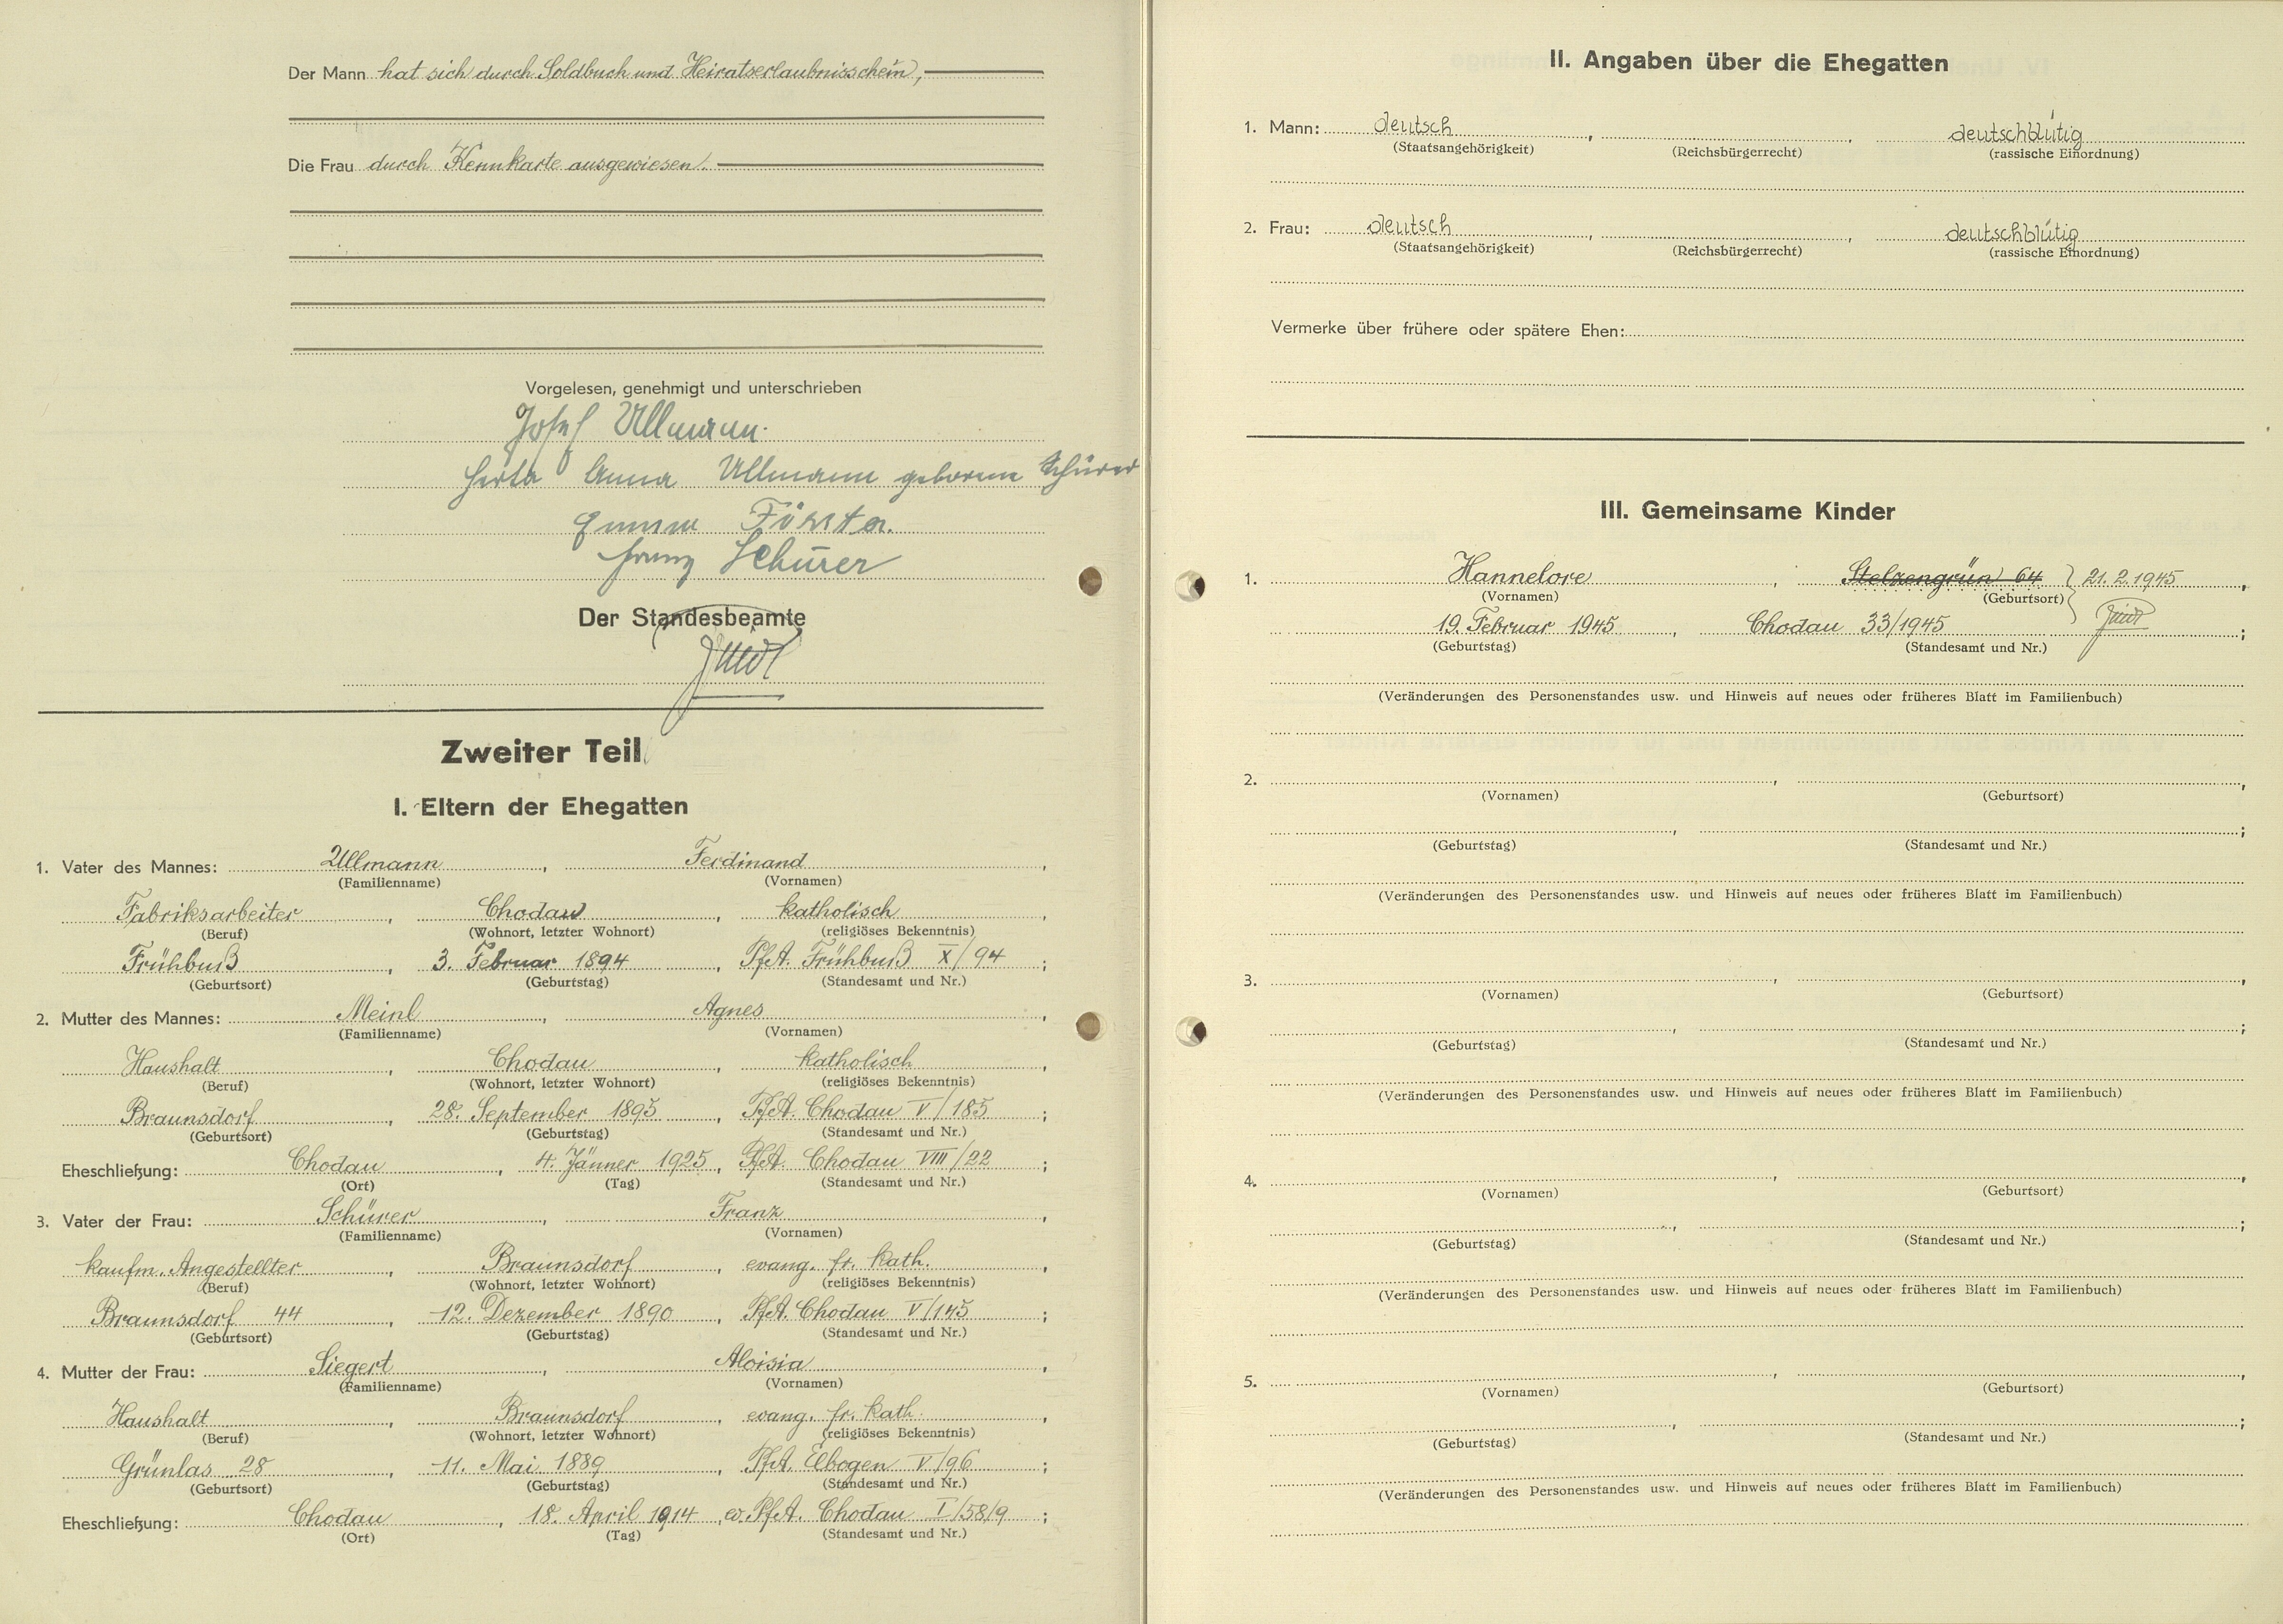 Der Mann hat sich durch Soldbuch und Heiratserlaubnisschein,
Die Frau durch Kennkarte ausgewiesen.
Vorgelesen, genehmigt und unterschrieben
Josef Ullmann.
Herta Anna Ullmann geborene Schürer
Franz Schürer
Der Standesbeamte
Zweiter Teil
I. Eltern der Ehegatten
1. Vater des Mannes: Ullmann, Ferdinand,
(Familienname) (Vornamen)
Fabriksarbeiter, Chodau, katholisch,
(Beruf) (Wohnort, letzter Wohnort) (religiöses Bekenntnis)
Frühbuß, 3. Februar 1894, PfA. Frühbuß X/94;
(Geburtsort) (Geburtstag) (Standesamt und Nr.)
2. Mutter des Mannes: Meinl, Agnes,
(Familienname) (Vornamen)
Haushalt, Chodau, katholisch,
(Beruf) (Wohnort, letzter Wohnort) (religiöses Bekenntnis)
Braunsdorf, 28. September 1895, PfA. Chodau V/185;
(Geburtsort) (Geburtstag) (Standesamt und Nr.)
Eheschließung: Chodau, 4. Jänner 1925, PfA. Chodau VIII/22;
(Ort) (Tag) (Standesamt und Nr.)
3. Vater der Frau: Schürer, Franz,
(Familienname) (Vornamen)
kaufm. Angestellter, Braunsdorf, evang. fr. kath.,
(Beruf) (Wohnort, letzter Wohnort) (religiöses Bekenntnis)
Braunsdorf 44, 12. Dezember 1890, PfA. Chodau V/145;
(Geburtsort) (Geburtstag) (Standesamt und Nr.)
4. Mutter der Frau: Siegert, Aloisia,
(Familienname) (Vornamen)
Haushalt, Braunsdorf, evang. fr. kath.,
(Beruf) (Wohnort, letzter Wohnort) (religiöses Bekenntnis)
Grünlas 28, 11. Mai 1889, PfA. Elbogen V/96;
(Geburtsort) (Geburtstag) (Standesamt und Nr.)
Eheschließung: Chodau, 18. April 1914, ev. PfA. Chodau I/58/9;
(Ort) (Tag) (Standesamt und Nr.)
II. Angaben über die Ehegatten
1. Mann: deutsch, , deutschblütig
(Staatsangehörigkeit) (Reichsbürgerrecht) (rassische Einordnung)
2. Frau: deutsch, , deutschblütig
(Staatsangehörigkeit) (Reichsbürgerrecht) (rassische Einordnung)
Vermerke über frühere oder spätere Ehen:
III. Gemeinsame Kinder
1. Hannelore, Stelzengrün 64 21.2.1945,
(Vornamen) (Geburtsort)
19. Februar 1945, Chodau 33/1945;
(Geburtstag) (Standesamt und Nr.)
(Veränderungen des Personenstandes usw. und Hinweis auf neues oder früheres Blatt im Familienbuch)
2. , ,
(Vornamen) (Geburtsort)
, ;
(Geburtstag) (Standesamt und Nr.)
(Veränderungen des Personenstandes usw. und Hinweis auf neues oder früheres Blatt im Familienbuch)
3. , ,
(Vornamen) (Geburtsort)
, ;
(Geburtstag) (Standesamt und Nr.)
(Veränderungen des Personenstandes usw. und Hinweis auf neues oder früheres Blatt im Familienbuch)
4. , ,
(Vornamen) (Geburtsort)
, ;
(Geburtstag) (Standesamt und Nr.)
(Veränderungen des Personenstandes usw. und Hinweis auf neues oder früheres Blatt im Familienbuch)
5. , ,
(Vornamen) (Geburtsort)
, ;
(Geburtstag) (Standesamt und Nr.)
(Veränderungen des Personenstandes usw. und Hinweis auf neues oder früheres Blatt im Familienbuch)